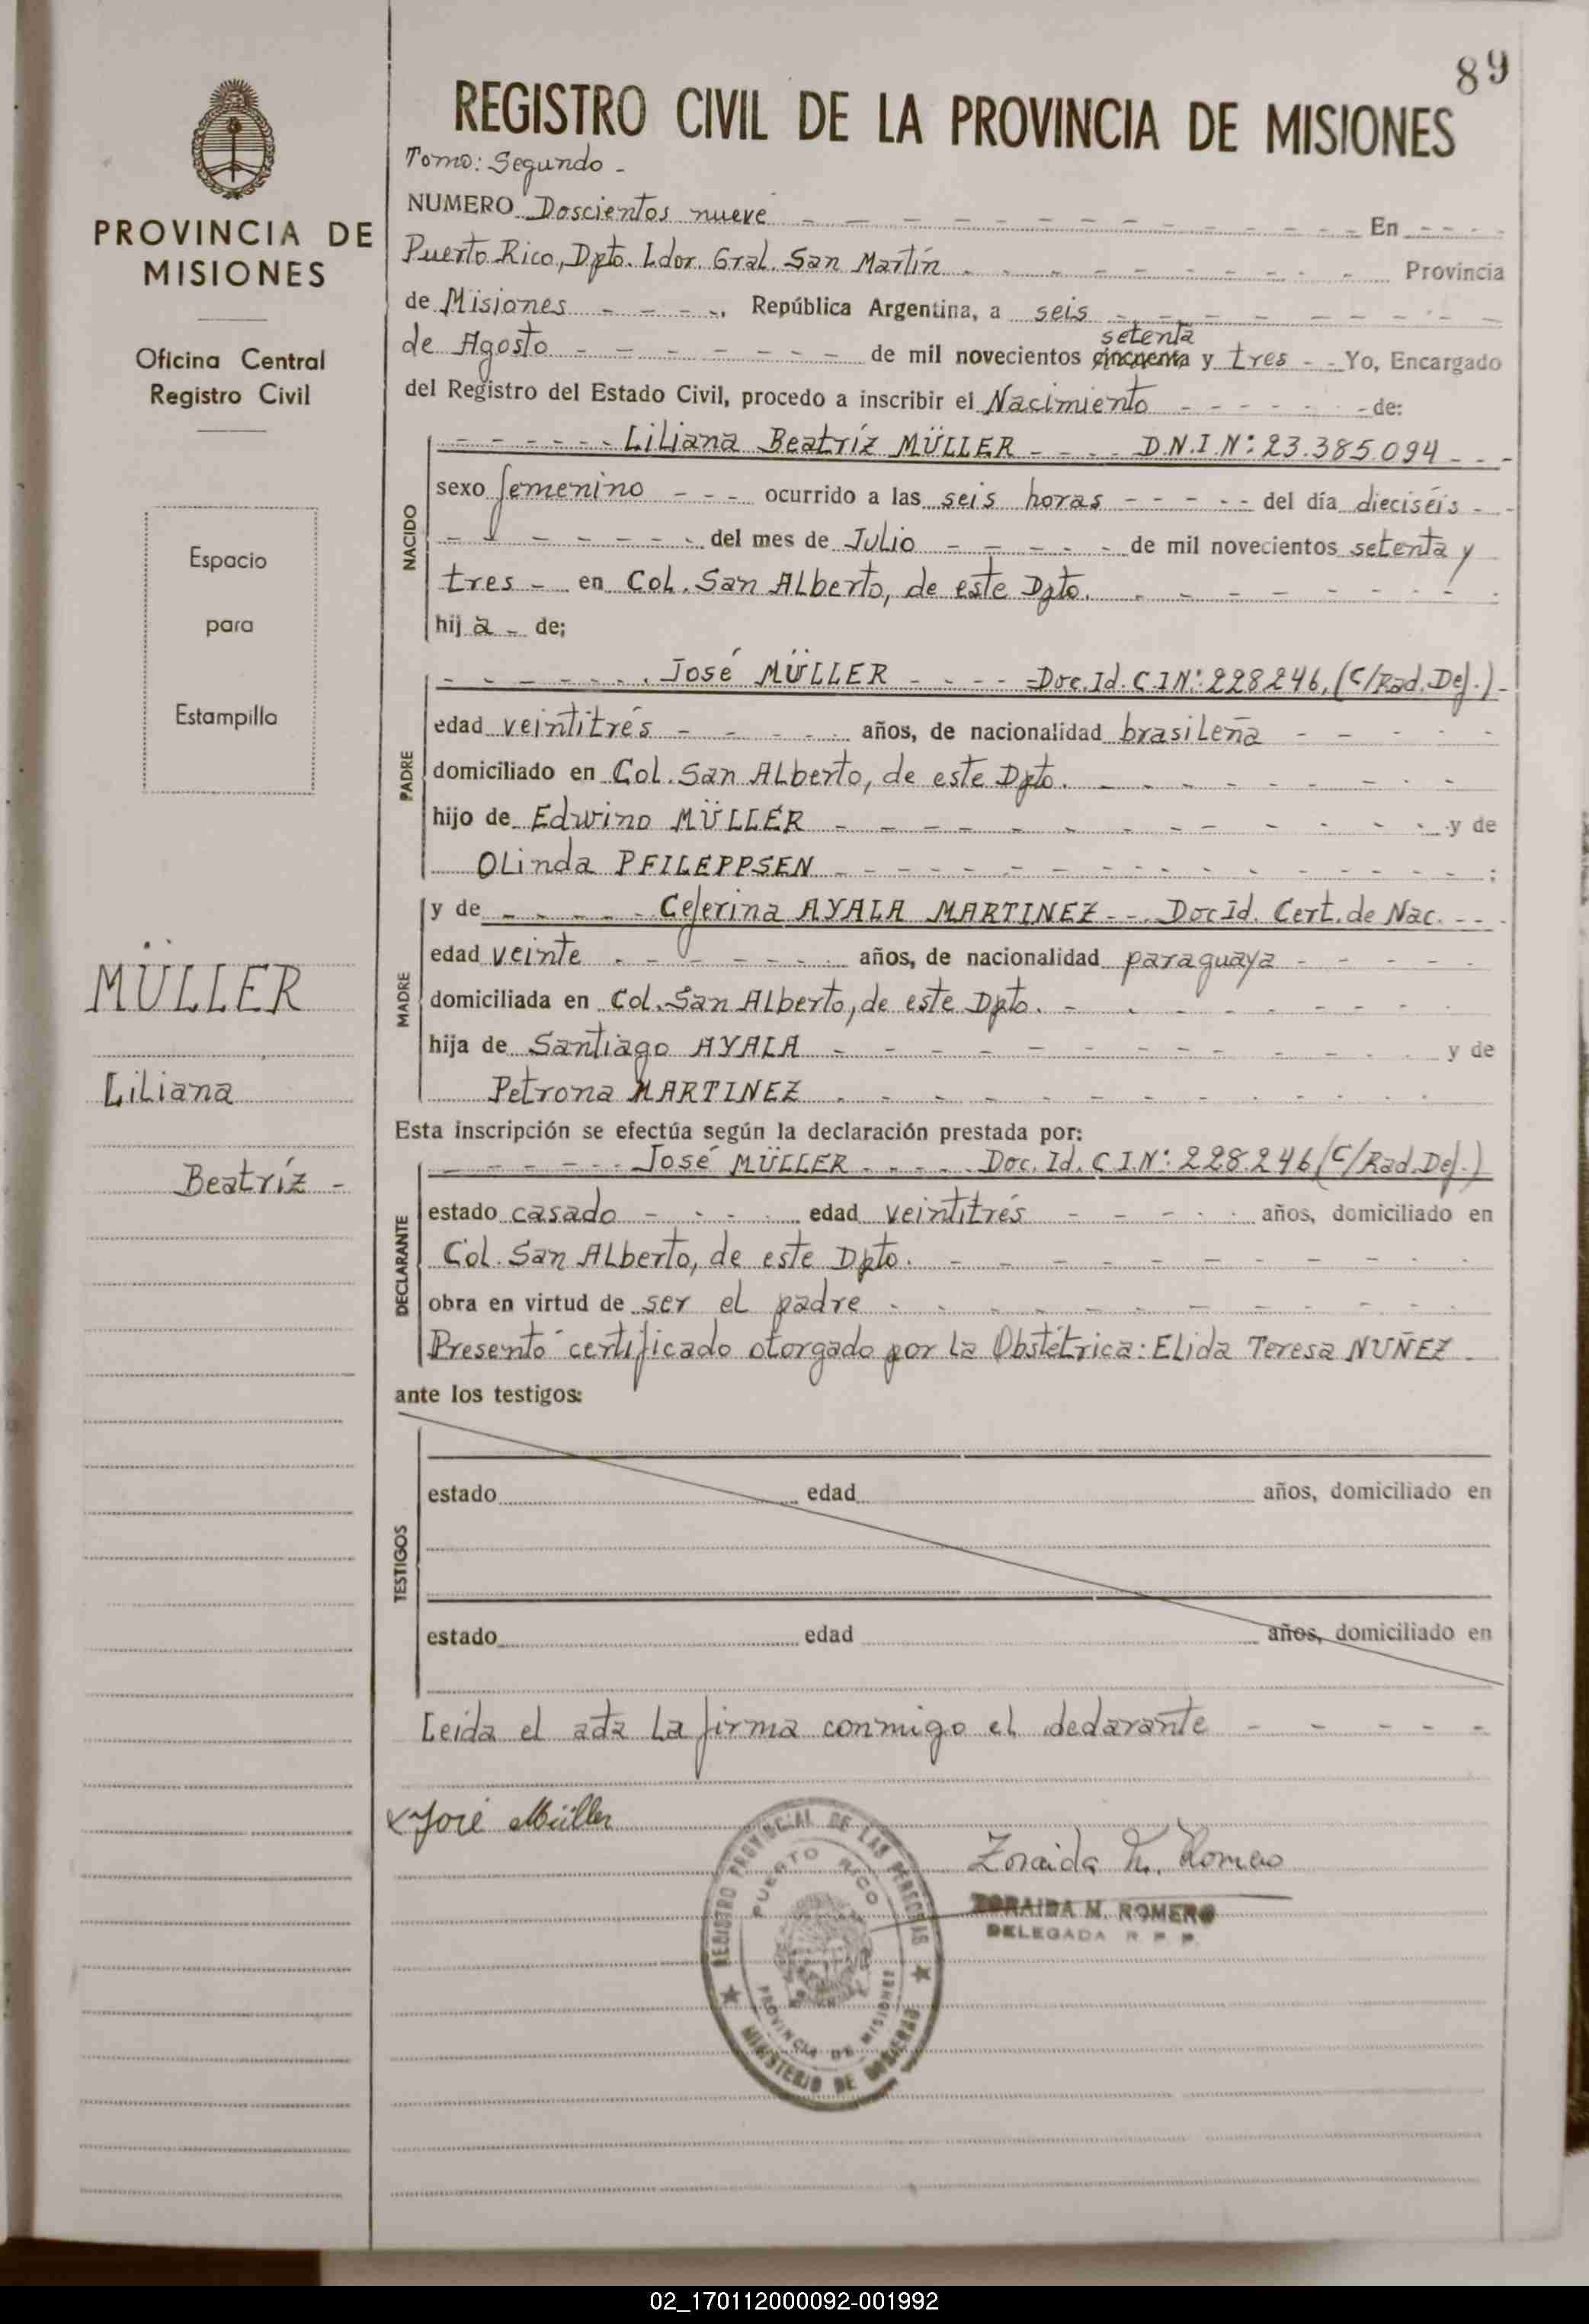 89
REGISTRO CIVIL DE LA PROVINCIA DE MISIONES
Tomo: Segundo -
NUMERO Doscientos nueve - - - En - - -
Puerto Rico, Dpto. Ldor. Gral. San Martín - - - Provincia
de Misiones - - - , República Argentina, a seis - - -
setenta
de Agosto - - - de mil novecientos cincuenta y tres - - Yo, Encargado
del Registro del Estado Civil, procedo a inscribir el Nacimiento - - - de:
- - - Liliana Beatríz MÜLLER - - - D.N.I.Nº: 23.385.094 - - -
NACIDO
sexo femenino - - - ocurrido a las seis horas - - - del día dieciséis - -
- - - del mes de Julio - - - de mil novecientos setenta y
tres - en Col. San Alberto, de este Dpto. - - -
hij a - de;
- - - José MÜLLER - - - Doc. Id. C.I.Nº: 228.246, (C/Rad. Def.) -
PADRE
edad veintitrés - - - años, de nacionalidad brasileña - - -
domiciliado en Col. San Alberto, de este Dpto. - - -
hijo de Edwino MÜLLER - - - y de
Olinda PFILEPPSEN - - - ;
y de - - - Ceferina AYALA MARTINEZ - - - Doc Id. Cert. de Nac. - - -
MADRE
edad veinte - - - años, de nacionalidad paraguaya - - -
domiciliada en Col. San Alberto, de este Dpto. - - -
hija de Santiago AYALA - - - y de
Petrona MARTINEZ - - -
Esta inscripción se efectúa según la declaración prestada por:
- - - José MÜLLER - - - Doc. Id. C.I.Nº: 228.246 (C/Rad. Def.)
DECLARANTE
estado casado - - - edad veintitrés - - - años, domiciliado en
Col. San Alberto, de este Dpto. - - -
obra en virtud de ser el padre - - -
Presentó certificado otorgado por la Obstétrica: Elida Teresa NUÑEZ -
ante los testigos:
TESTIGOS
estado edad años, domiciliado en
estado edad años, domiciliado en
Leída el acta la firma conmigo el declarante - - -
x José Müller
Zoraida M. Romero
ZORAIDA M. ROMERO
DELEGADA R. P. P.
REGISTRO PROVINCIAL DE LAS PERSONAS
PUERTO RICO
PROVINCIA DE MISIONES
MINISTERIO DE GOBIERNO
PROVINCIA DE
MISIONES
Oficina Central
Registro Civil
Espacio
para
Estampilla
MÜLLER
Liliana
Beatríz -
02_170112000092-001992